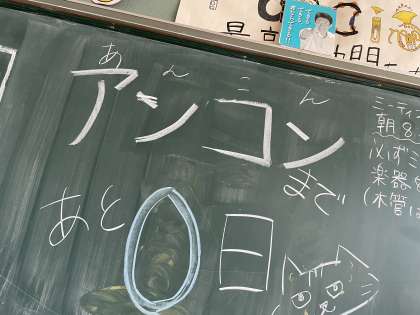 あんこん
アンコン
まで
あと0日
ミーティン
朝8
必ずミ
楽器
(木管は